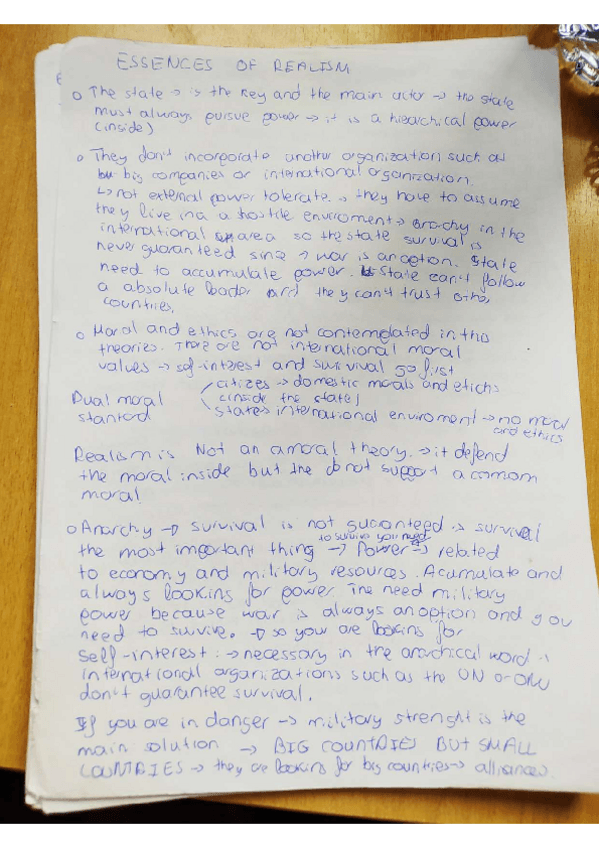 ESSENCES OF REALISM
o The state → is the key and the main actor → the state
must always pursue power → it is a hierachical power
(inside)
o They don't incorporate another organization such as
big companies or international organization.
↳ not external power tolerate. → they have to assume
they live in a hostile enviroment → anarchy in the
international area so the state survival is
never guaranteed since → war is an option. State
need to accumulate power. State can't follow
a absolute leader and they can't trust other
countries.
o Moral and ethics are not contemplated in this
theories. There are not international moral
values → self-interest and survival go first
citizes → domestic morals and etichs
Dual moral
(inside the state)
stantard
states international enviroment → no moral
and ethics
Realism is Not an amoral theory. → it defend
the moral inside but the do not support a comom
moral
o Anarchy → survival is not guaranteed → survival
to survive you need
the most important thing → Power → related
to economy and military resources. Acumulate and
always looking for power the need military
power because war is always an option and you
need to survive. → so you are looking for
self-interest. → necessary in the anarchical word →
international organizations such as the UN or ONU
don't guarantee survival.
If you are in danger → military strenght is the
main solution → BIG COUNTRIES BUT SMALL
COUNTRIES → they are looking for big countries → alliances.